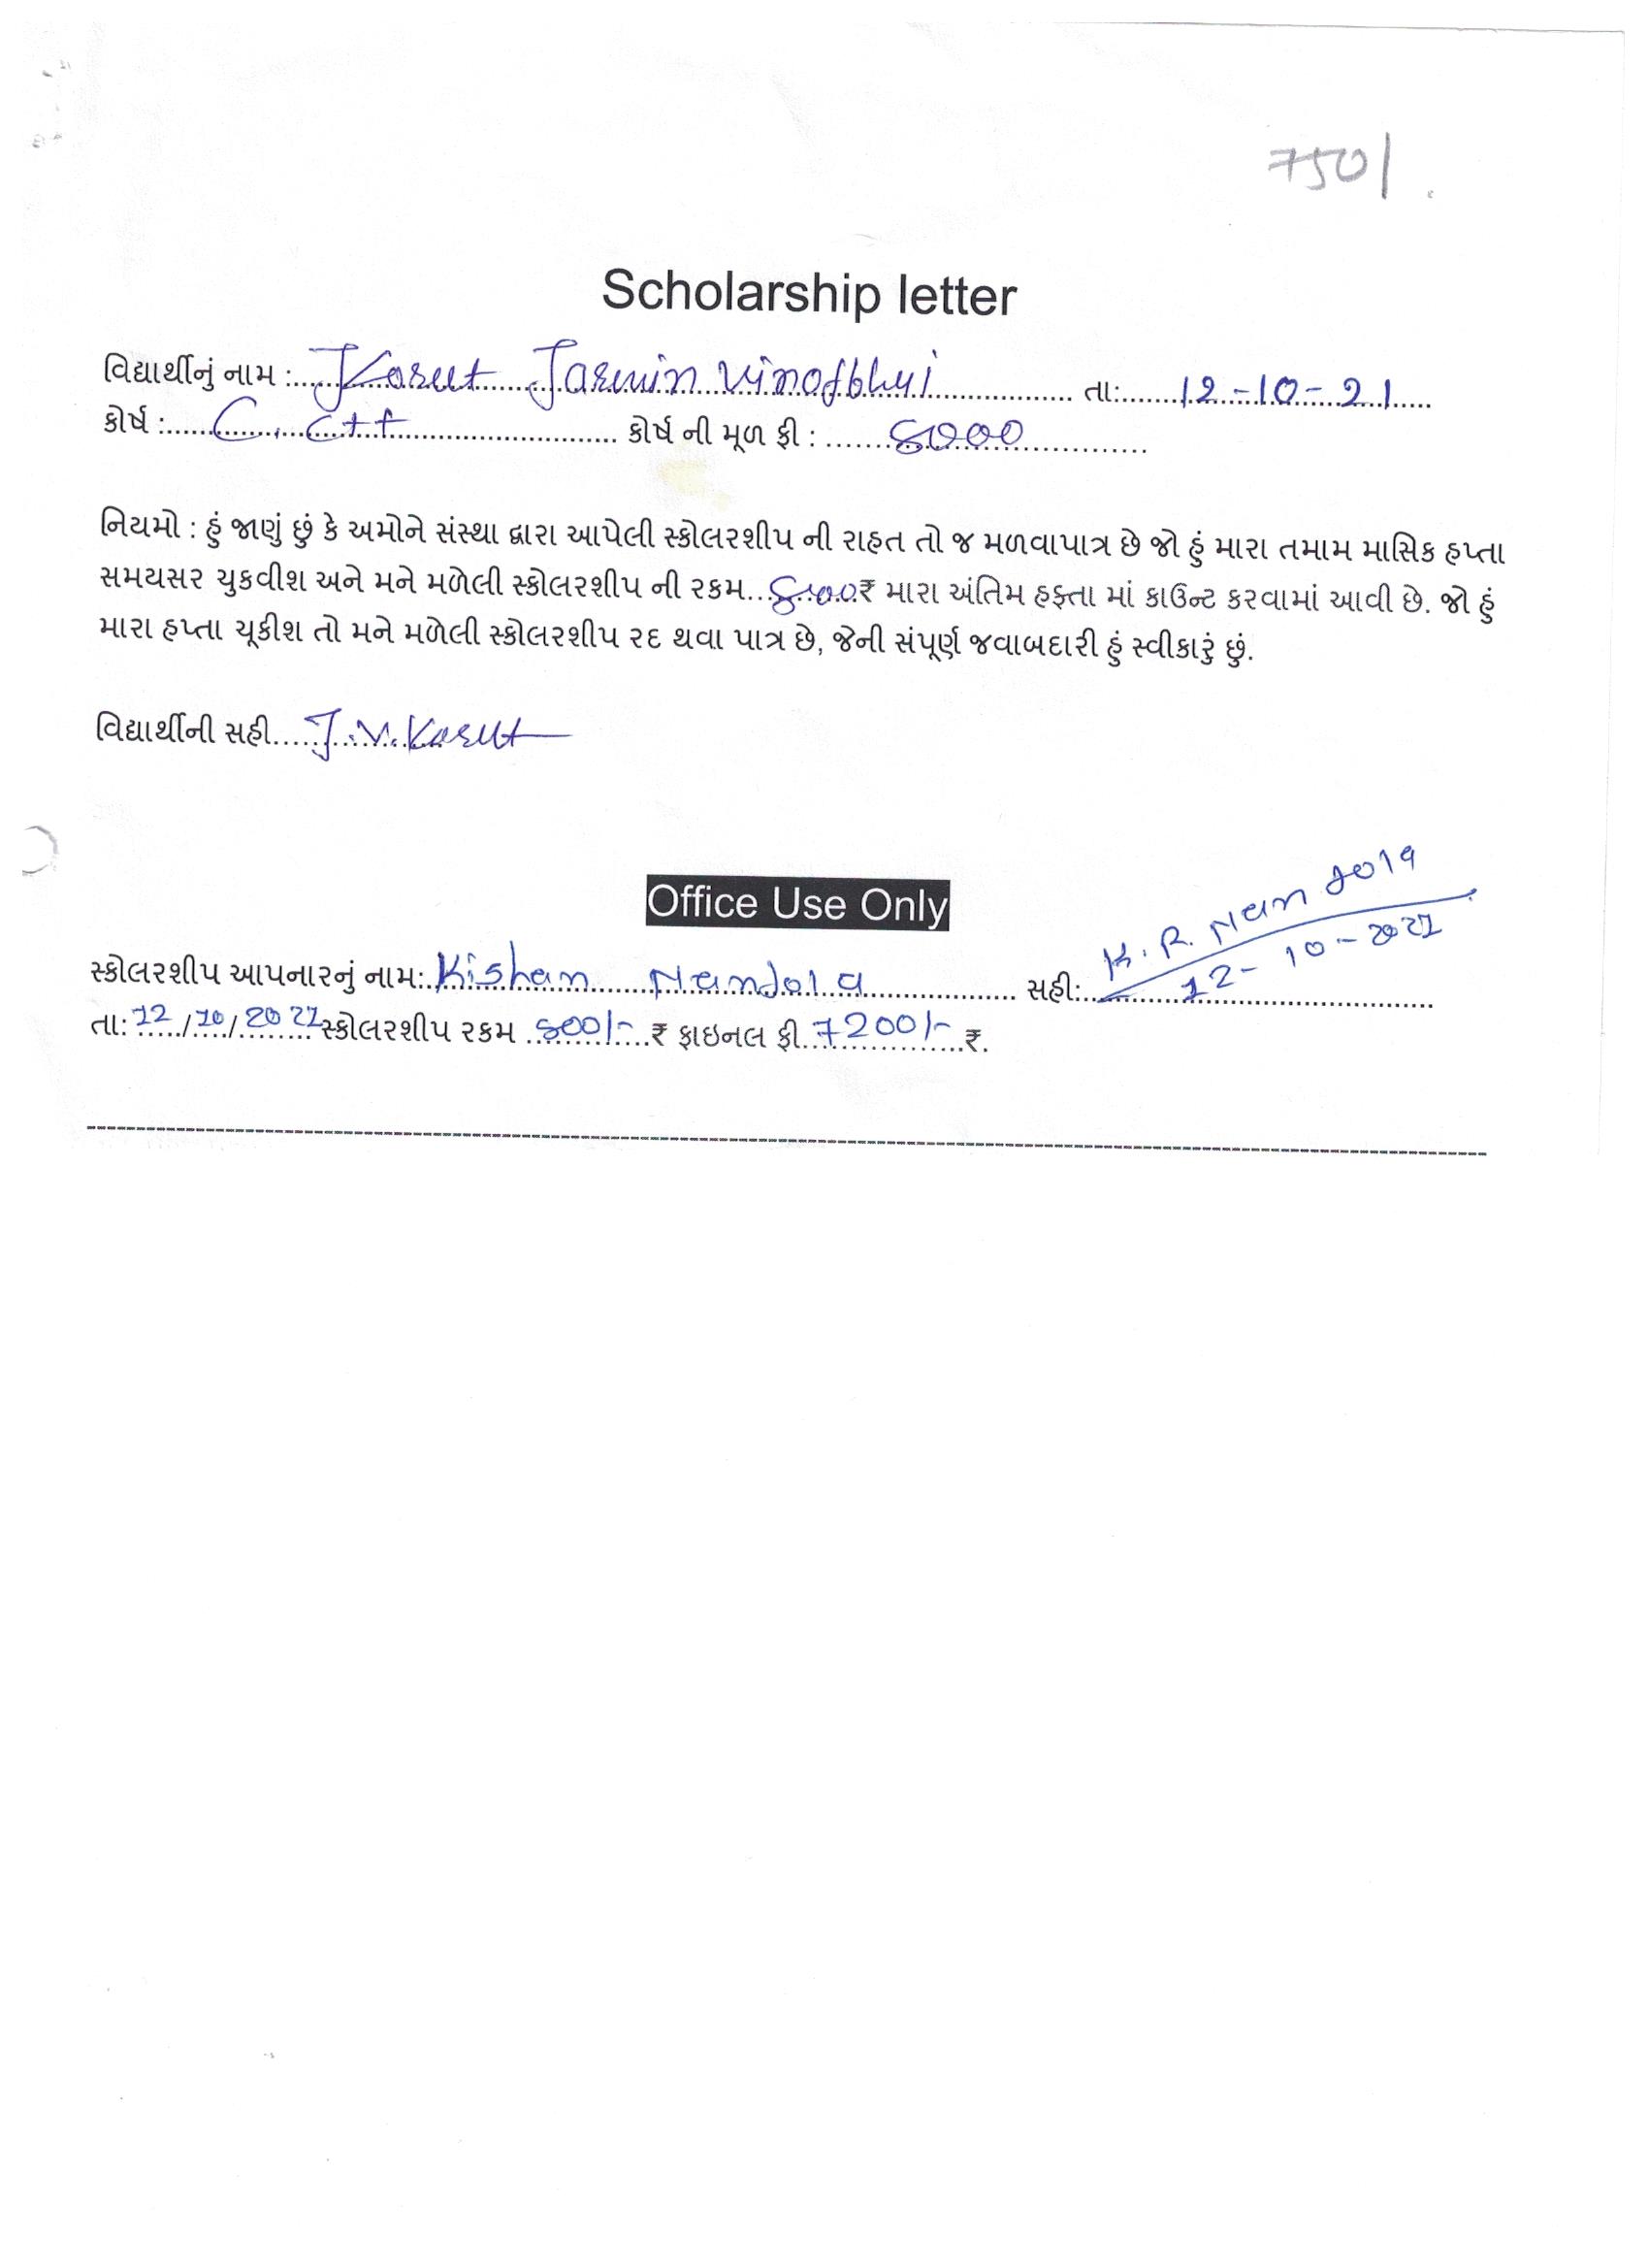 750/.
Scholarship letter
વિદ્યાર્થીનું નામ : Jasmin તા: 12-10-21
કોર્ષ : C, C++ કોર્ષ ની મૂળ ફી : 8000
નિયમો : હું જાણું છું કે અમોને સંસ્થા દ્વારા આપેલી સ્કોલરશીપ ની રાહત તો જ મળવાપાત્ર છે જો હું મારા તમામ માસિક હપ્તા
સમયસર ચુકવીશ અને મને મળેલી સ્કોલરશીપ ની રકમ...800₹ મારા અંતિમ હફ્તા માં કાઉન્ટ કરવામાં આવી છે. જો હું
મારા હપ્તા ચૂકીશ તો મને મળેલી સ્કોલરશીપ રદ થવા પાત્ર છે, જેની સંપૂર્ણ જવાબદારી હું સ્વીકારું છું.
વિદ્યાર્થીની સહી J.V.
Office Use Only
સ્કોલરશીપ આપનારનું નામ: Kishan Nandola સહી: K. R. Nandola
12-10-2021
તા: 12/10/2021 સ્કોલરશીપ રકમ 800/- ₹ ફાઇનલ ફી 7200/- ₹.